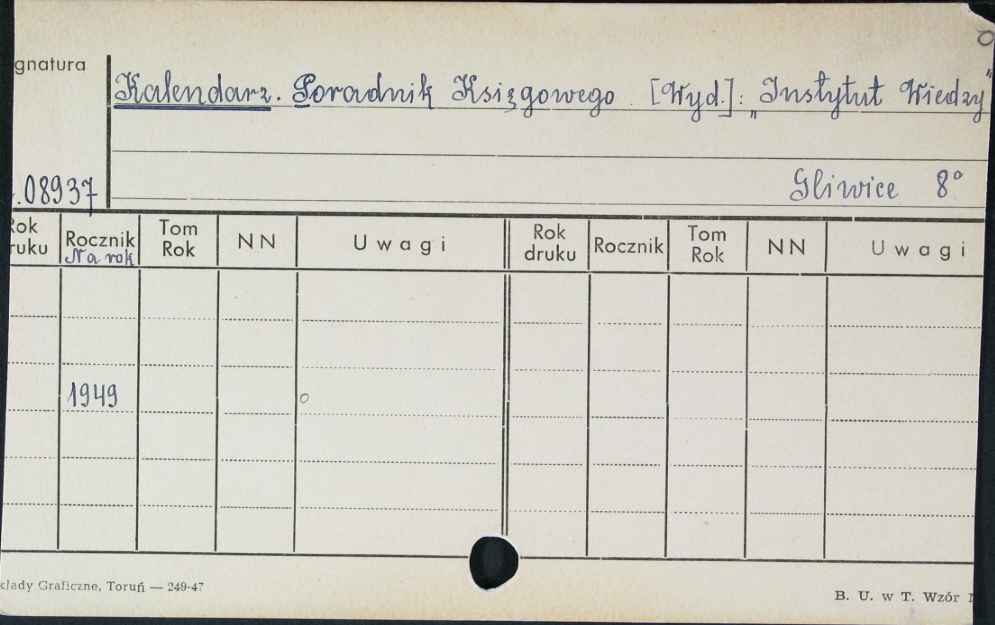 gnatura
Kalendarz. Poradnik Księgowego. [Wyd.]: „Instytut Wiedzy"
.08937
Gliwice 8°
Rok druku Rocznik Na rok Tom Rok NN Uwagi Rok druku Rocznik Tom Rok NN Uwagi
1949
kłady Graficzne, Toruń — 249-47
B. U. w T. Wzór